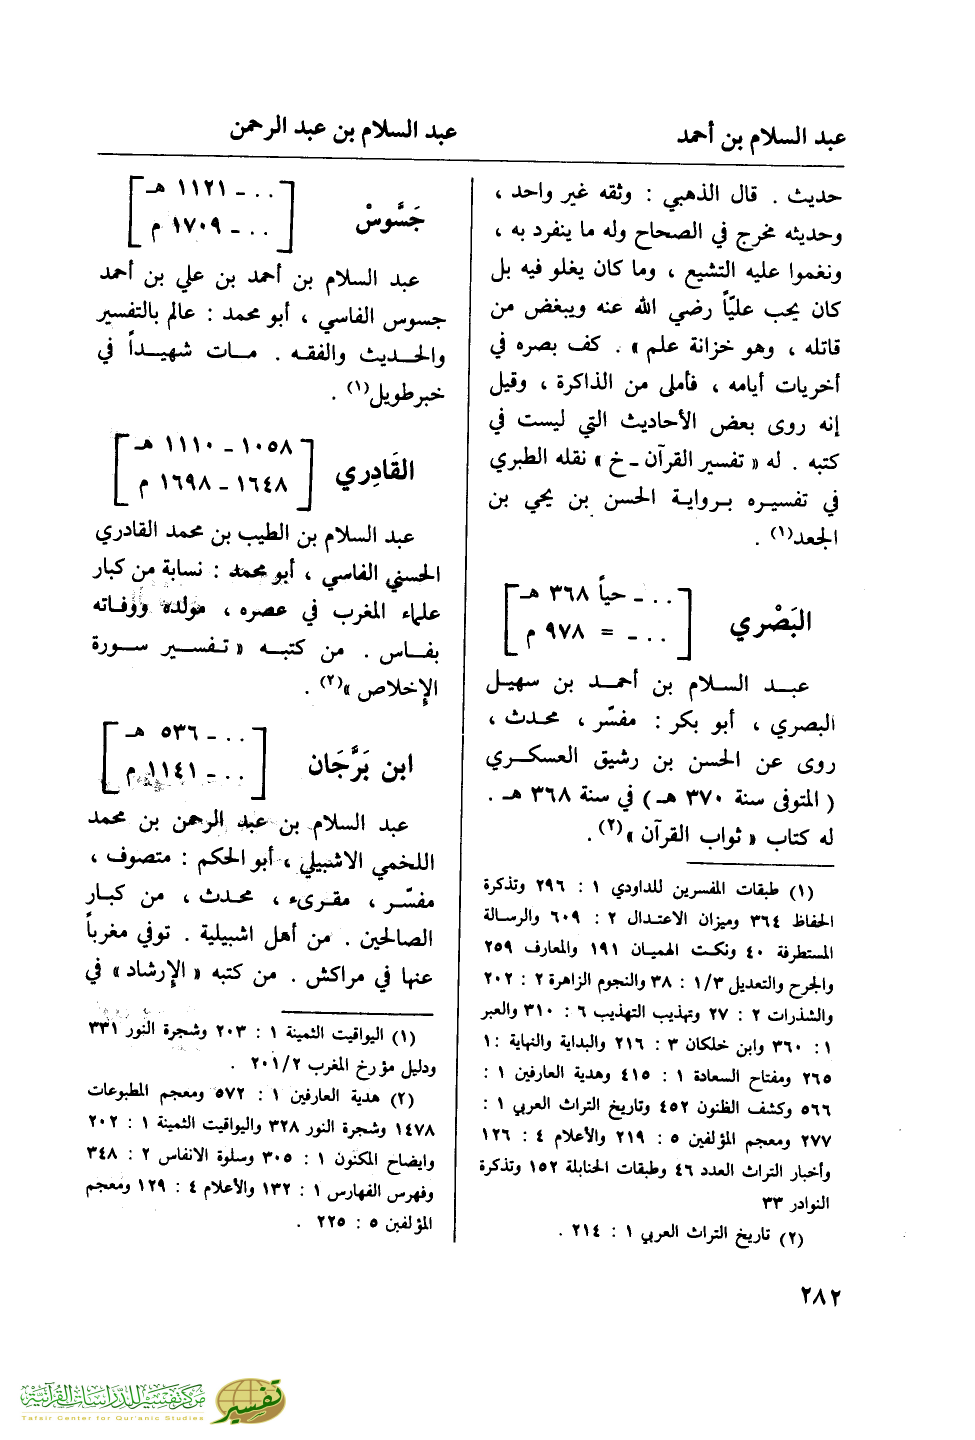 عبد السلام بن أحمد
عبد السلام بن عبد الرحمن
حديث . قال الذهبي : وثقه غير واحد ،
وحديثه مخرج في الصحاح وله ما ينفرد به ،
ونغموا عليه التشيع ، وما كان يغلو فيه بل
كان يحب عليّاً رضي الله عنه ويبغض من
قاتله ، وهو خزانة علم » . كف بصره في
أخريات أيامه ، فأملى من الذاكرة ، وقيل
إنه روى بعض الأحاديث التي ليست في
كتبه . له « تفسير القرآن ـ خ » نقله الطبري
في تفسيره برواية الحسن بن يحيي بن
الجعد(١) .
البَصْري
[ . . ـ حياً ٣٦٨ هـ ]
[ . . ـ = ٩٧٨ م ]
عبد السلام بن أحمد بن سهيل
البصري ، أبو بكر : مفسّر ، محدث ،
روى عن الحسن بن رشيق العسكري
( المتوفى سنة ٣٧٠ هـ ) في سنة ٣٦٨ هـ .
له كتاب « ثواب القرآن »(٢) .
(١) طبقات المفسرين للداودي ١ : ٢٩٦ وتذكرة
الحفاظ ٣٦٤ وميزان الاعتدال ٢ : ٦٠٩ والرسالة
المستطرفة ٤٠ ونكت الهميان ١٩١ والمعارف ٢٥٩
والجرح والتعديل ١/٣ : ٣٨ والنجوم الزاهرة ٢ : ٢٠٢
والشذرات ٢ : ٢٧ وتهذيب التهذيب ٦ : ٣١٠ والعبر
١ : ٣٦٠ وابن خلكان ٣ : ٢١٦ والبداية والنهاية ١:
٢٦٥ ومفتاح السعادة ١ : ٤١٥ وهدية العارفين ١ :
٥٦٦ وكشف الظنون ٤٥٢ وتاريخ التراث العربي ١ :
٢٧٧ ومعجم المؤلفين ٥ : ٢١٩ والأعلام ٤ : ١٢٦
وأخبار التراث العدد ٤٦ وطبقات الحنابلة ١٥٢ وتذكرة
النوادر ٣٣
(٢) تاريخ التراث العربي ١ : ٢١٤ .
جَسُّوسْ
[ . . ـ ١١٢١ هـ ]
[ . . ـ ١٧٠٩ م ]
عبد السلام بن أحمد بن علي بن أحمد
جسوس الفاسي ، أبو محمد : عالم بالتفسير
والحديث والفقه . مات شهيداً في
خبر طويل(١) .
القَادِري
[ ١٠٥٨ ـ ١١١٠ هـ ]
[ ١٦٤٨ ـ ١٦٩٨ م ]
عبد السلام بن الطيب بن محمد القادري
الحسني الفاسي ، أبو محمد : نسابة من كبار
علماء المغرب في عصره ، مولده ووفاته
بفاس . من كتبه « تفسير سورة
الإخلاص »(٢) .
ابن بَرَّجَان
[ . . ـ ٥٣٦ هـ ]
[ . . ـ ١١٤١ م ]
عبد السلام بن عبد الرحمن بن محمد
اللخمي الاشبيلي ، أبو الحكم : متصوف ،
مفسّر ، مقرىء ، محدث ، من كبار
الصالحين . من أهل اشبيلية . توفي مغرباً
عنها في مراكش . من كتبه « الإرشاد » في
(١) اليواقيت الثمينة ١ : ٢٠٣ وشجرة النور ٣٣١
ودليل مؤرخ المغرب ٢٠١/٢ .
(٢) هدية العارفين ١ : ٥٧٢ ومعجم المطبوعات
١٤٧٨ وشجرة النور ٣٢٨ واليواقيت الثمينة ١ : ٢٠٢
وايضاح المكنون ١ : ٣٠٥ وسلوة الانفاس ٢ : ٣٤٨
وفهرس الفهارس ١ : ١٣٢ والأعلام ٤ : ١٢٩ ومعجم
المؤلفين ٥ : ٢٢٥ .
٢٨٢
مركز تفسير للدراسات القرآنية
Tafsir Center for Qur'anic Studies
تفسير